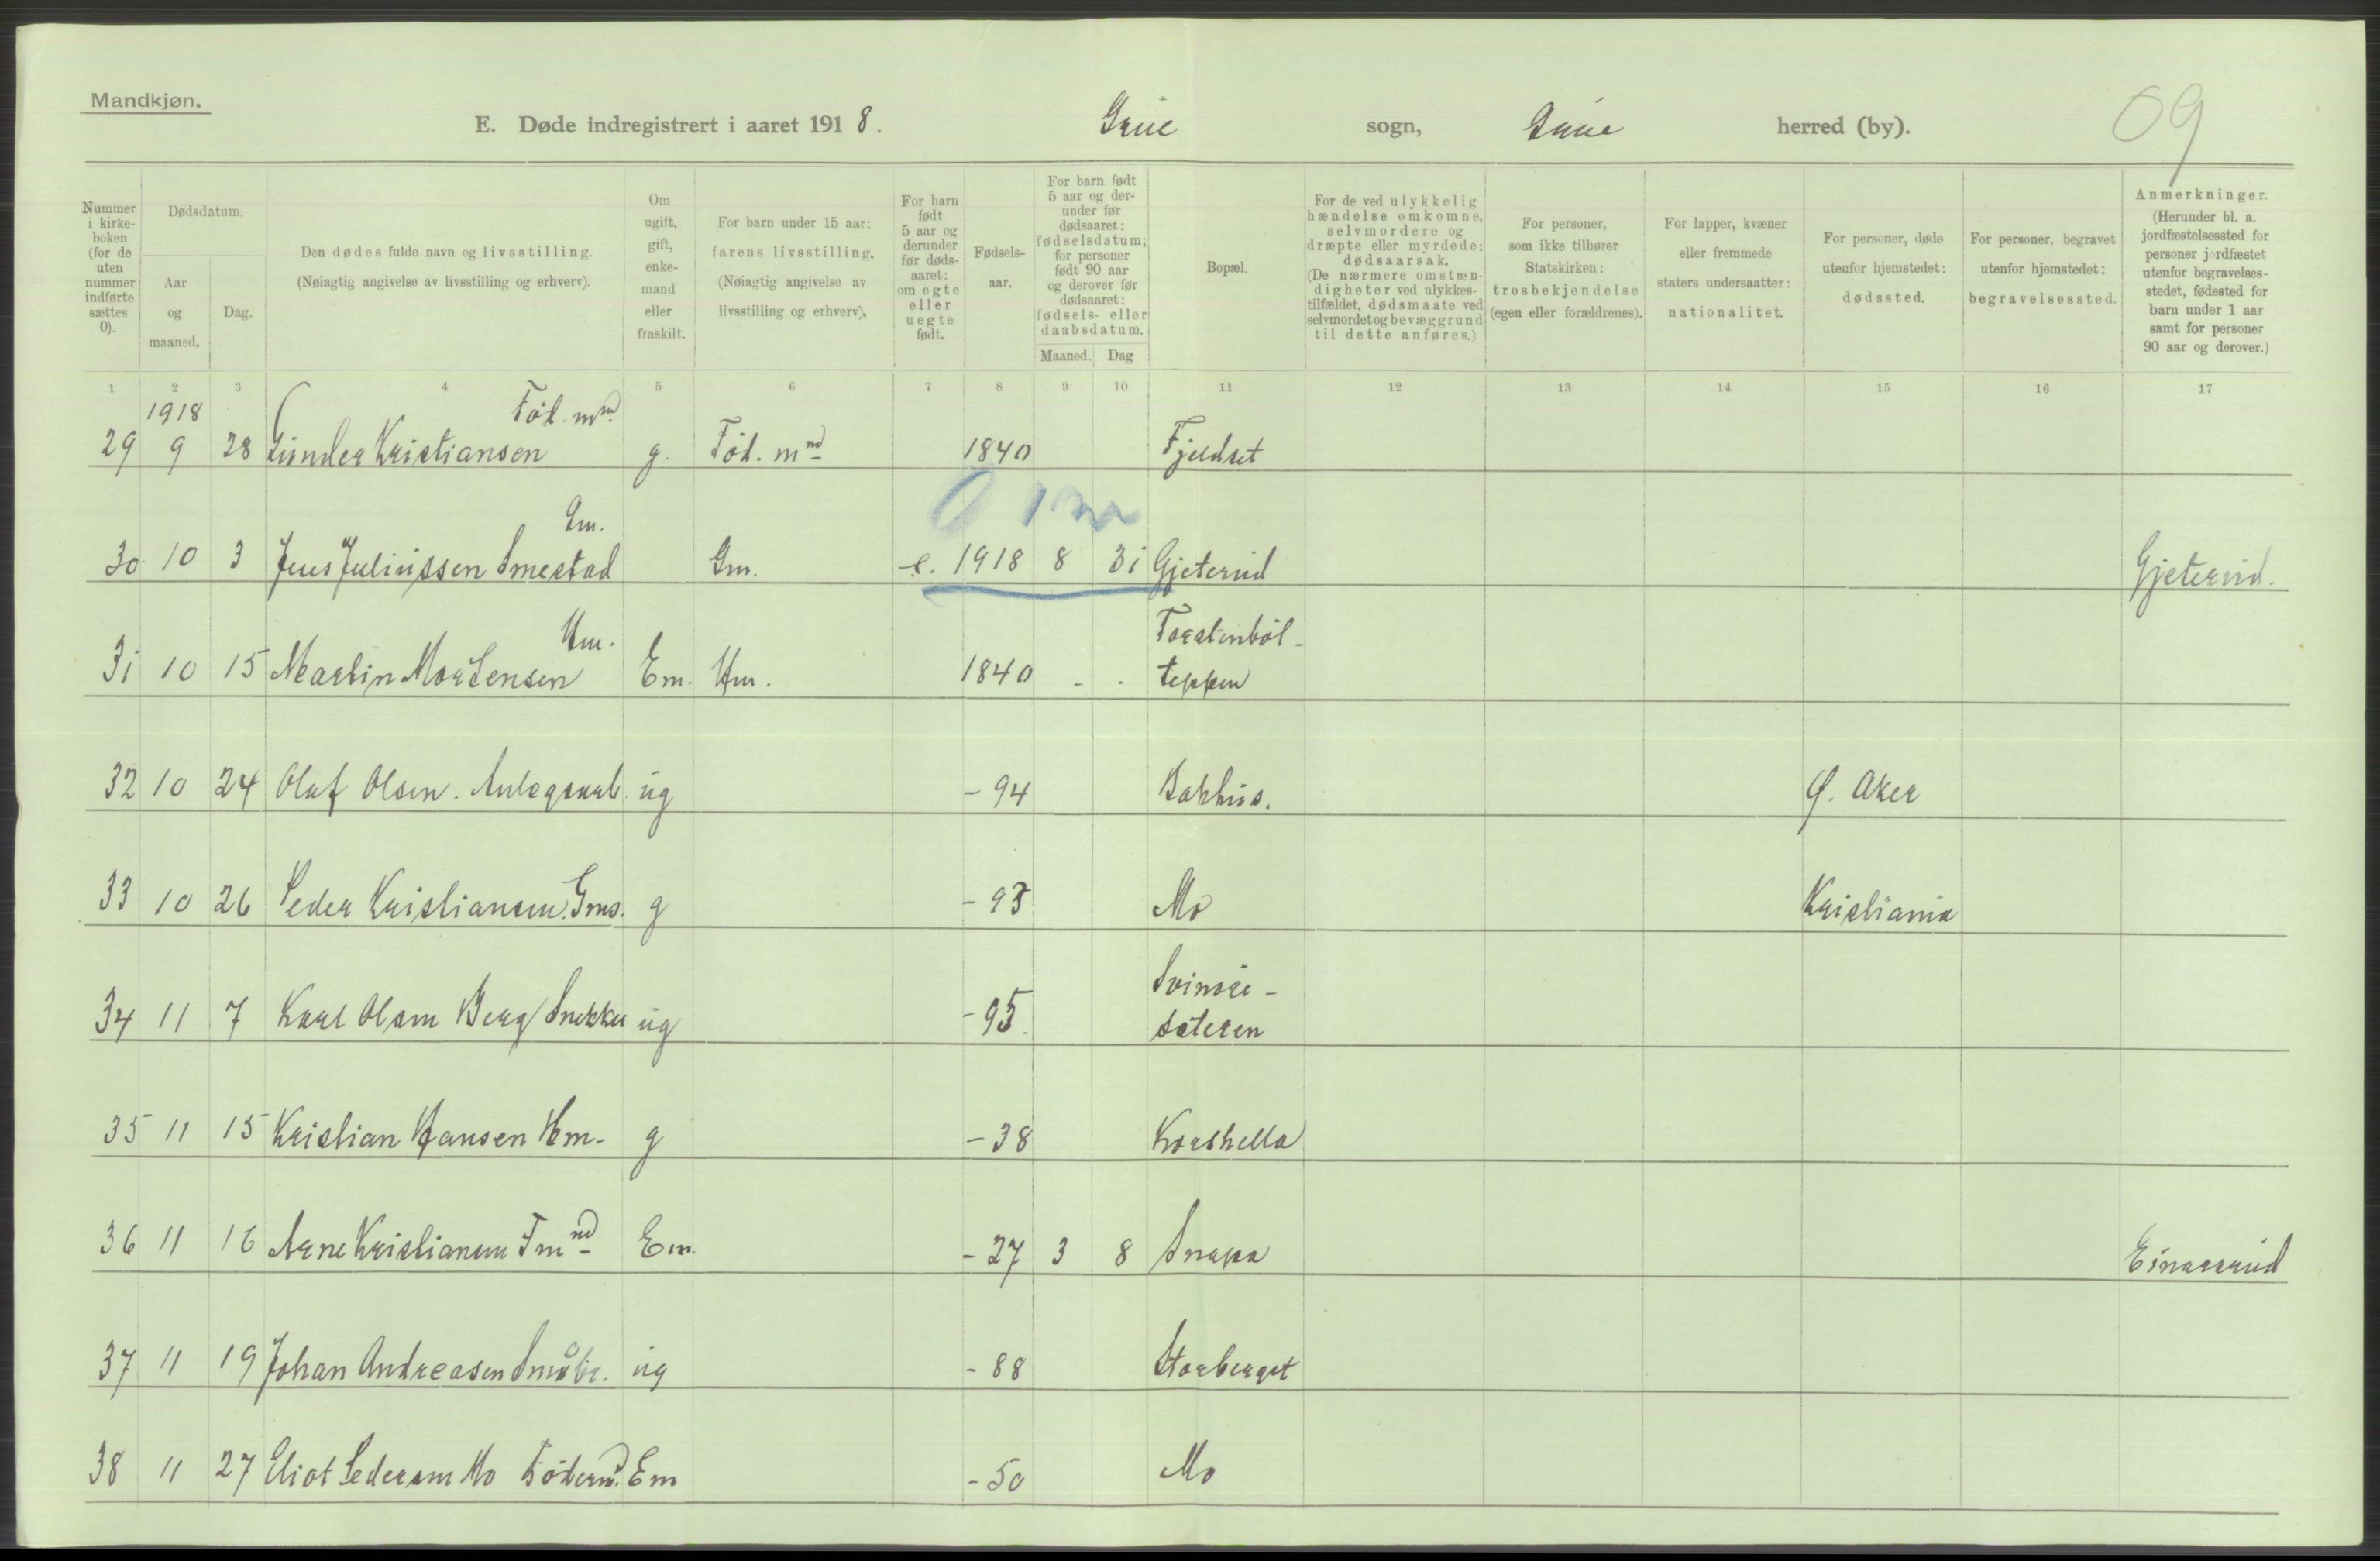 Mandkjøn.
E. Døde indregistrert i aaret 1918. Grue sogn, Grue herred (by). 09
Nummer i kirkeboken (for de uten nummer indførte sættes 0).
Dødsdatum.
Aar og maaned.
Dag.
Den dødes fulde navn og livsstilling.
(Nøiagtig angivelse av livsstilling og erhverv).
Om ugift, gift, enkemand eller fraskilt.
For barn under 15 aar: farens livsstilling. (Nøiagtig angivelse av livsstilling og erhverv).
For barn født 5 aar og derunder før dødsaaret: om egte eller uegte født.
Fødselsaar.
For barn født 5 aar og derunder før dødsaaret: fødselsdatum; for personer født 90 aar og derover før dødsaaret: fødsels- eller daabsdatum.
Maaned. Dag
Bopæl.
For de ved ulykkelig hændelse omkomne, selvmordere og dræpte eller myrdede: dødsaarsak. (De nærmere omstændigheter ved ulykkestilfældet, dødsmaate ved selvmordet og bevæggrund til dette anføres.)
For personer, som ikke tilhører Statskirken: trosbekjendelse (egen eller forældrenes).
For lapper, kvæner eller fremmede staters undersaatter: nationalitet.
For personer, døde utenfor hjemstedet: dødssted.
For personer, begravet utenfor hjemstedet: begravelsessted.
Anmerkninger. (Herunder bl. a. jordfæstelsessted for personer jordfæstet utenfor begravelsesstedet, fødested for barn under 1 aar samt for personer 90 aar og derover.)
1 2 3 4 5 6 7 8 9 10 11 12 13 14 15 16 17
1918 Föd. mnd.
29 9 28 Gunder Kristiansen g. Föd. mnd 1840 Fjeldset
0
Gm.
30 10 3 Jens Juliussen Smestad Gm. e. 1918 8 31 Gjeterud Gjeterud.
Hm. Torstenböl-
31 10 15 Martin Mortensen Em. Hm. 1840 - - teppen
32 10 24 Olaf Olsen. ug - 94 Bakhus. Ø. Aker
33 10 26 Peder Kristiansen. Gms. g - 93 Mo Kristiania
34 11 7 Karl Olsen Berg Snekker ug - 95. sæteren
35 11 15 Kristian Hansen Hm. g - 38 Korshella
36 11 16 Arne Kristiansen Fmnd Em. - 27 3 8 Snapa Einarsrud
37 11 19 Johan Andreasen Småbr. ug - 88 Storberget
38 11 27 Eliot Pedersen Mo Föderm. Em - 50 Mo